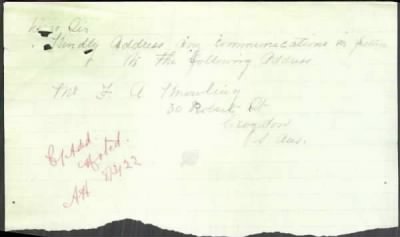 Dear Sir
Kindly Address any communications in future
to the following Address
Mr F. A Mouling
30 Robert St
Croydon
S. Aus.
Noted.
AH 2/3/22